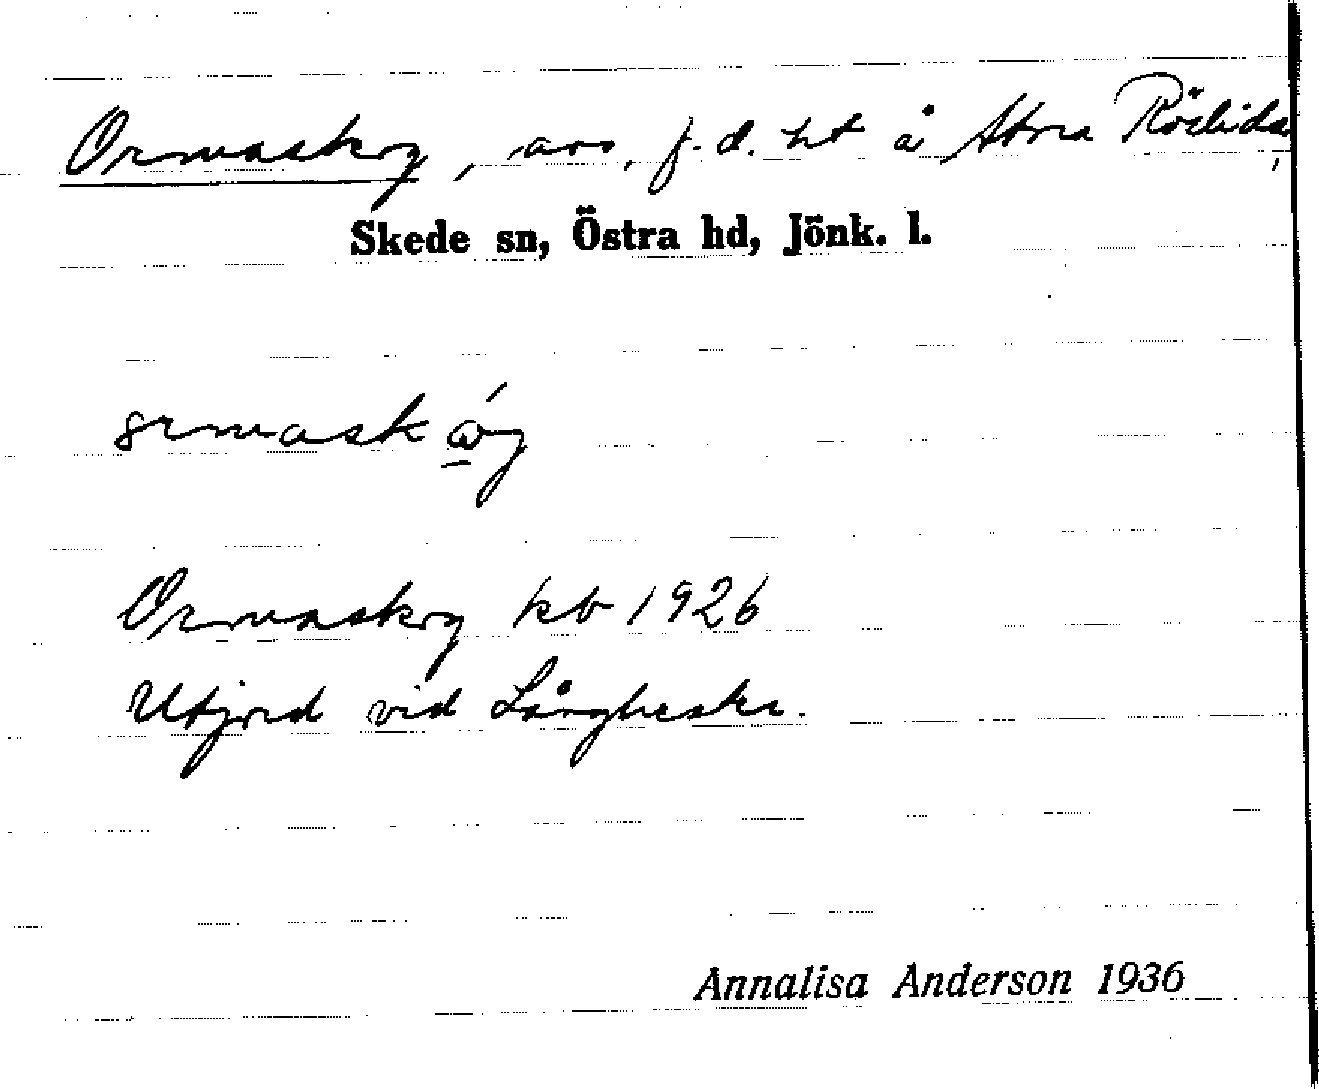 Ormaskog, avs, f.d. ht å Stora Röslida,
Skede sn, Östra hd, Jönk. l.
Ormaskog kb 1926
Utjord vid Långheska.
Annalisa Anderson 1936